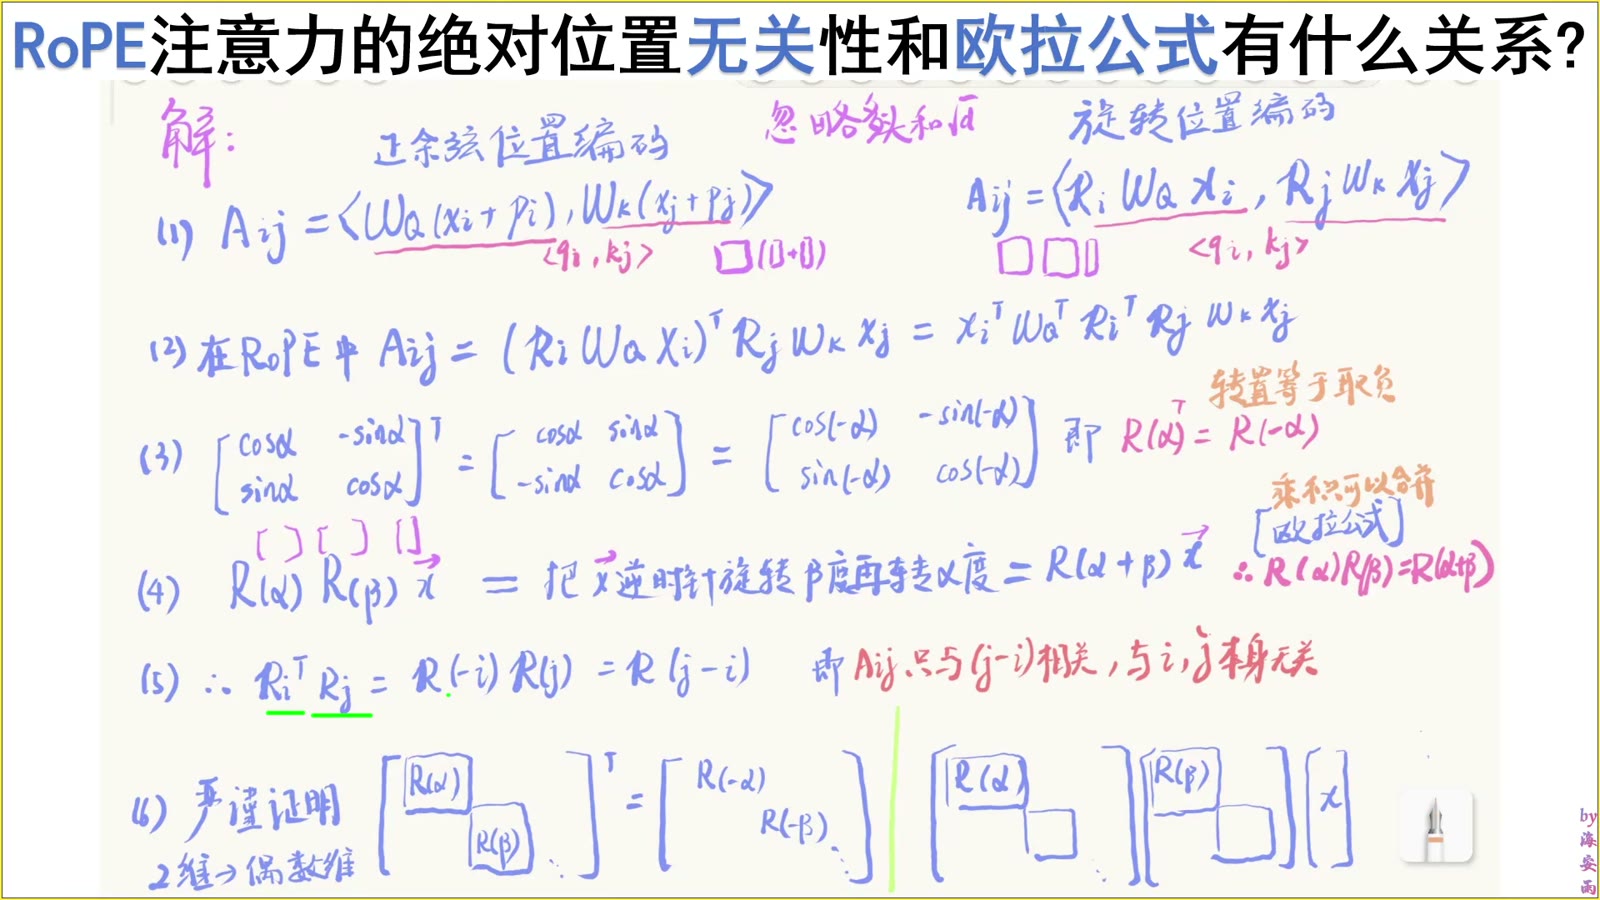 RoPE注意力的绝对位置无关性和欧拉公式有什么关系?
解:
正余弦位置编码
忽略多头和√d
旋转位置编码
(1) Aij = <WQ(xi+pi), WK(xj+pj)>
Aij = <Ri WQ xi, Rj WK xj>
<qi, kj>
□(▯+▯)
□□▯
<qi, kj>
(2) 在RoPE中 Aij = (Ri WQ xi)ᵀ Rj WK xj = xiᵀ WQᵀ Riᵀ Rj WK xj
转置等于取负
(3) [cosα -sinα; sinα cosα]ᵀ = [cosα sinα; -sinα cosα] = [cos(-α) -sin(-α); sin(-α) cos(-α)] 即 R(α)ᵀ = R(-α)
乘积可以合并
[欧拉公式]
[ ] [ ] []
(4) R(α) R(β) x⃗ = 把x⃗逆时针旋转β度再转α度 = R(α+β) x⃗ ∴R(α)R(β)=R(α+β)
(5) ∴ Riᵀ Rj = R(-i) R(j) = R(j-i) 即 Aij只与(j-i)相关,与i,j本身无关
(6) 严谨证明
2维→偶数维
[R(α) R(β) ⋱]ᵀ = [R(-α) R(-β) ⋱]
[R(α) □ ⋱][R(β) □][x]
by海安雨